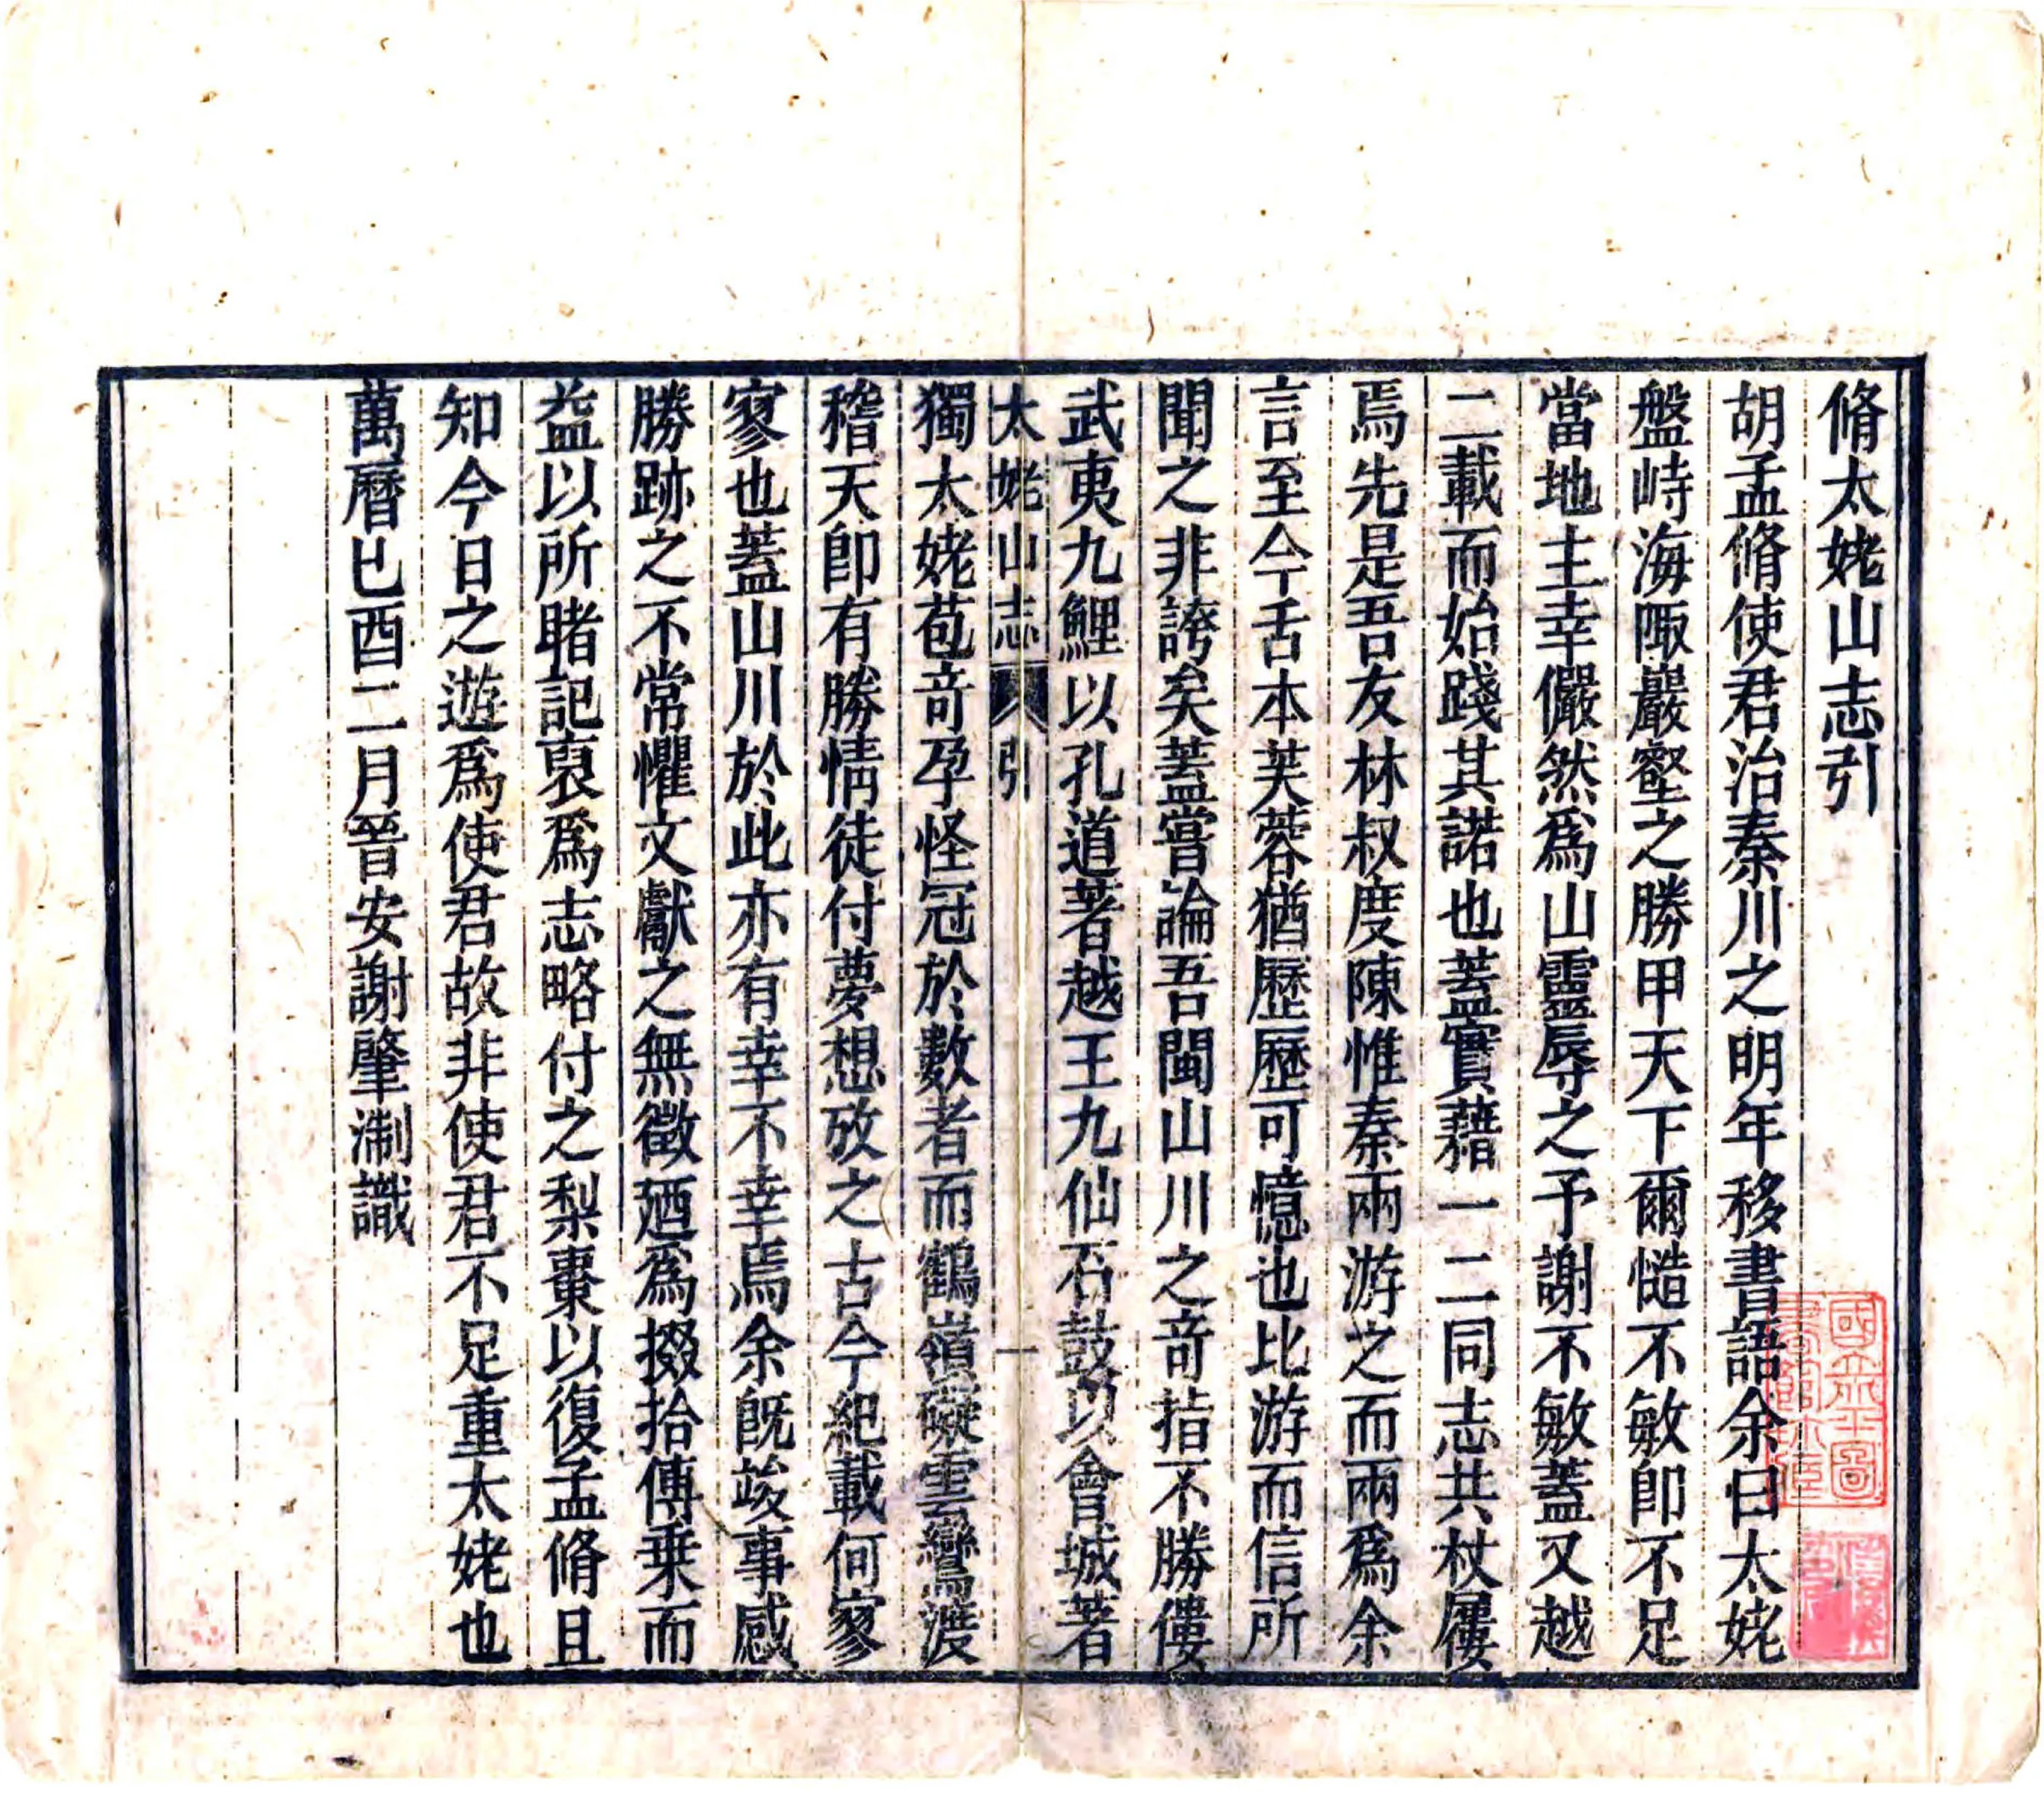 脩太姥山志引
胡孟脩使君治秦川之明年移書語余曰太姥
盤峙海陬巖壑之勝甲天下爾慥不敏卽不足
當地主幸儼然爲山靈辱之予謝不敏蓋又越
二載而始踐其諾也蓋實藉一二同志共杖屨
焉先是吾友林叔度陳惟秦兩游之而兩爲余
言至今舌本芙蓉猶歷歷可憶也比游而信所
聞之非誇矣蓋嘗論吾閩山川之竒指不勝僂
武夷九鯉以孔道著越王九仙石鼓以會城著
太姥山志 引 一
獨太姥苞竒孕怪冠於數者而鶴嶺礙雲鸞渡
稽天卽有勝情徒付夢想攷之古今紀載何寥
寥也蓋山川於此亦有幸不幸焉余旣竣事感
勝跡之不常懼文獻之無徵廼爲掇拾傳乗而
益以所睹記裒爲志略付之梨棗以復孟脩且
知今日之遊爲使君故非使君不足重太姥也
萬曆己酉二月晉安謝肇淛識
國立北平圖書館收藏